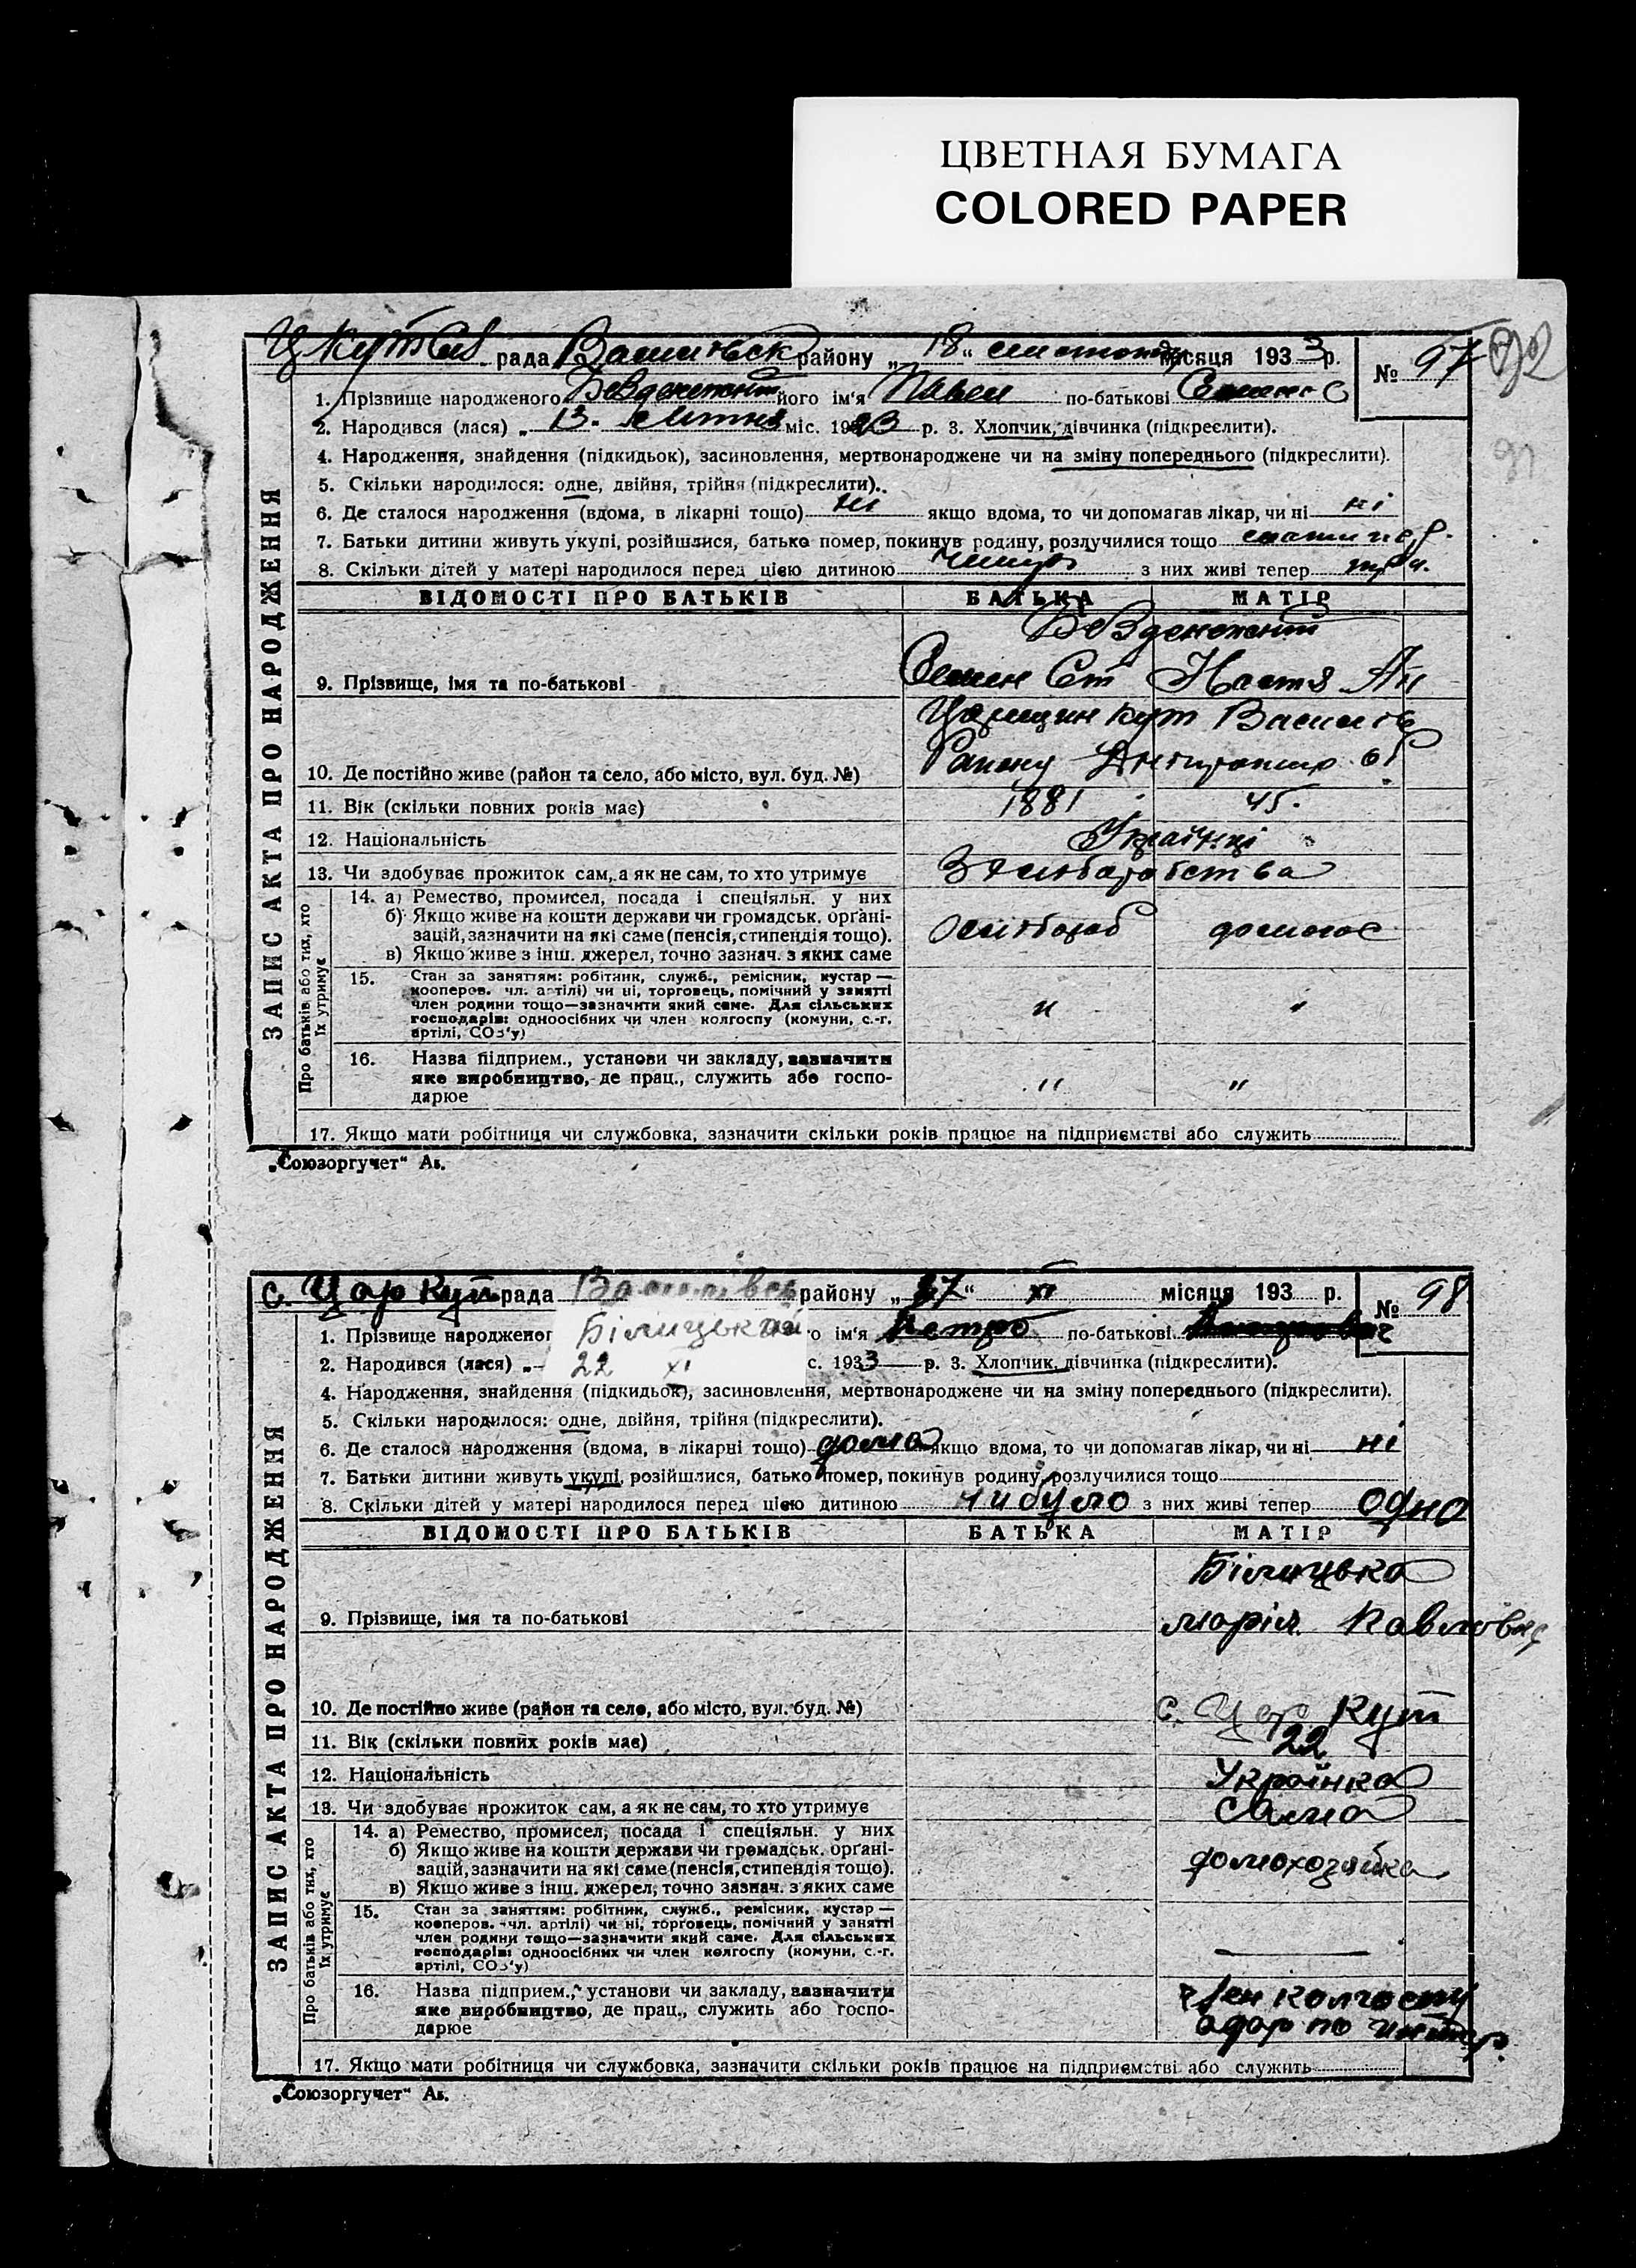 ЦВЕТНАЯ БУМАГА
COLORED PAPER
рада району „ 18 “ місяця 1933 р. № 97
92
1. Прізвище народженого його ім'я Павел по-батькові
2. Народився (лася) „ 13. міс. 19 р. 3. Хлопчик, дівчинка (підкреслити).
4. Народження, знайдення (підкидьок), засиновлення, мертвонароджене чи на зміну попереднього (підкреслити).
91
5. Скільки народилося: одне, двійня, трійня (підкреслити).
6. Де сталося народження (вдома, в лікарні тощо) ні якщо вдома, то чи допомагав лікар, чи ні ні
7. Батьки дитини живуть укупі, розійшлися, батько помер, покинув родину, розлучилися тощо
8. Скільки дітей у матері народилося перед цією дитиною з них живі тепер
ЗАПИС АКТА ПРО НАРОДЖЕННЯ
ВІДОМОСТІ ПРО БАТЬКІВ БАТЬКА МАТІР
9. Прізвище, імя та по-батькові Семен Ст Настя Ан
Царицин Кут Василів
10. Де постійно живе (район та село, або місто, вул. буд. №) Району
11. Вік (скільки повних років має) 1881 45.
12. Національність Українці
13. Чи здобуває прожиток сам, а як не сам, то хто утримує
Про батьків або тих, хто їх утримує
14. а) Ремество, промисел, посада і спеціяльн. у них
б) Якщо живе на кошти держави чи громадськ. органі-
зацій, зазначити на які саме (пенсія, стипендія тощо).
в) Якщо живе з інш. джерел, точно зазнач. з яких саме
15. Стан за заняттям: робітник, служб., ремісник, кустар —
кооперов. чл. артілі) чи ні, торговець, помічний у занятті
член родини тощо—зазначити який саме. Для сільських
господарів: одноосібних чи член колгоспу (комуни, с.-г.
артілі, СОЗ'у) " "
16. Назва підприєм., установи чи закладу, зазначити
яке виробництво, де прац., служить або госпо-
дарює " "
17. Якщо мати робітниця чи службовка, зазначити скільки років працює на підприємстві або служить
„Союзоргучет“ Ак.
С. Цар Кут рада Василівськ району „ 27 “ XI місяця 193 р. № 98
1. Прізвище народженог Білицький о ім'я Петро по-батькові
2. Народився (лася) „ 22 XI с. 1933 р. 3. Хлопчик, дівчинка (підкреслити).
4. Народження, знайдення (підкидьок), засиновлення, мертвонароджене чи на зміну попереднього (підкреслити).
5. Скільки народилося: одне, двійня, трійня (підкреслити).
6. Де сталося народження (вдома, в лікарні тощо) дома якщо вдома, то чи допомагав лікар, чи ні ні
7. Батьки дитини живуть укупі, розійшлися, батько помер, покинув родину, розлучилися тощо
8. Скільки дітей у матері народилося перед цією дитиною ни було з них живі тепер одно
ЗАПИС АКТА ПРО НАРОДЖЕННЯ
ВІДОМОСТІ ПРО БАТЬКІВ БАТЬКА МАТІР
Білицька
9. Прізвище, імя та по-батькові Марія Павловна
10. Де постійно живе (район та село, або місто, вул. буд. №) с. Цар Кут
11. Вік (скільки повних років має) 22
12. Національність Українка
13. Чи здобуває прожиток сам, а як не сам, то хто утримує сама
Про батьків або тих, хто їх утримує
14. а) Ремество, промисел, посада і спеціяльн. у них
б) Якщо живе на кошти держави чи громадськ. органі-
зацій, зазначити на які саме (пенсія, стипендія тощо). домохозяйка
в) Якщо живе з інш. джерел, точно зазнач. з яких саме
15. Стан за заняттям: робітник, служб., ремісник, кустар —
кооперов. чл. артілі) чи ні, торговець, помічний у занятті
член родини тощо—зазначити який саме. Для сільських
господарів: одноосібних чи член колгоспу (комуни, с.-г.
артілі, СОЗ'у)
16. Назва підприєм., установи чи закладу, зазначити член колгоспу
яке виробництво, де прац., служить або госпо-
дарює
17. Якщо мати робітниця чи службовка, зазначити скільки років працює на підприємстві або служить
„Союзоргучет“ Ак.